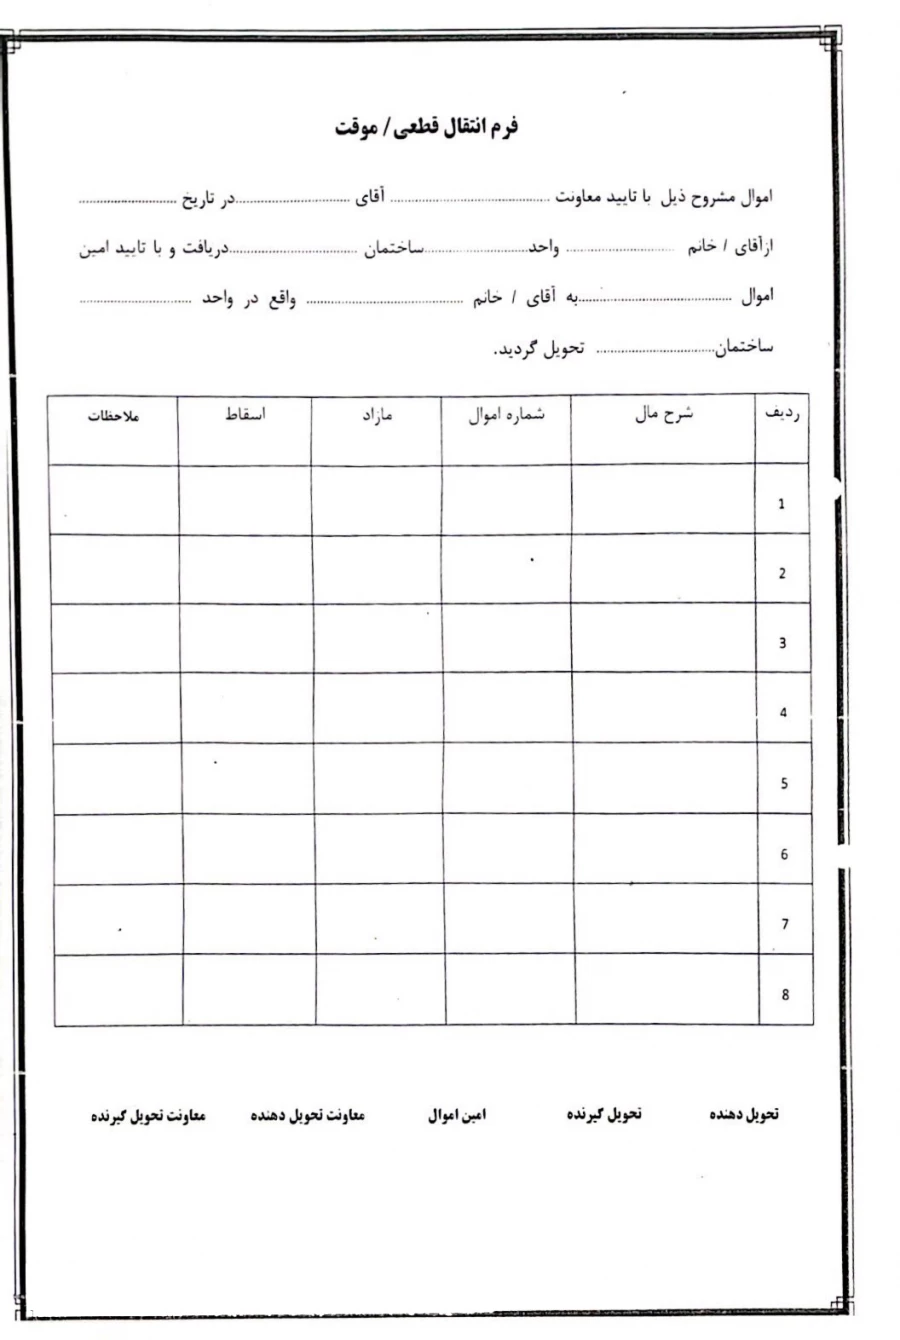 فرم انتقال قطعی/ موقت
اموال مشروح ذیل با تایید معاونت ........................................ آقای .............................در تاریخ .........................
ازآقای / خانم ........................... واحد..........................ساختمان ................................دریافت و با تایید امین
اموال .......................................به آقای / خانم ........................................ واقع در واحد ............................
ساختمان.............................. تحویل گردید.
ردیف شرح مال شماره اموال مازاد اسقاط ملاحظات
1
2
3
4
5
6
7
8
تحویل دهنده تحویل گیرنده امین اموال معاونت تحویل دهنده معاونت تحویل گیرنده